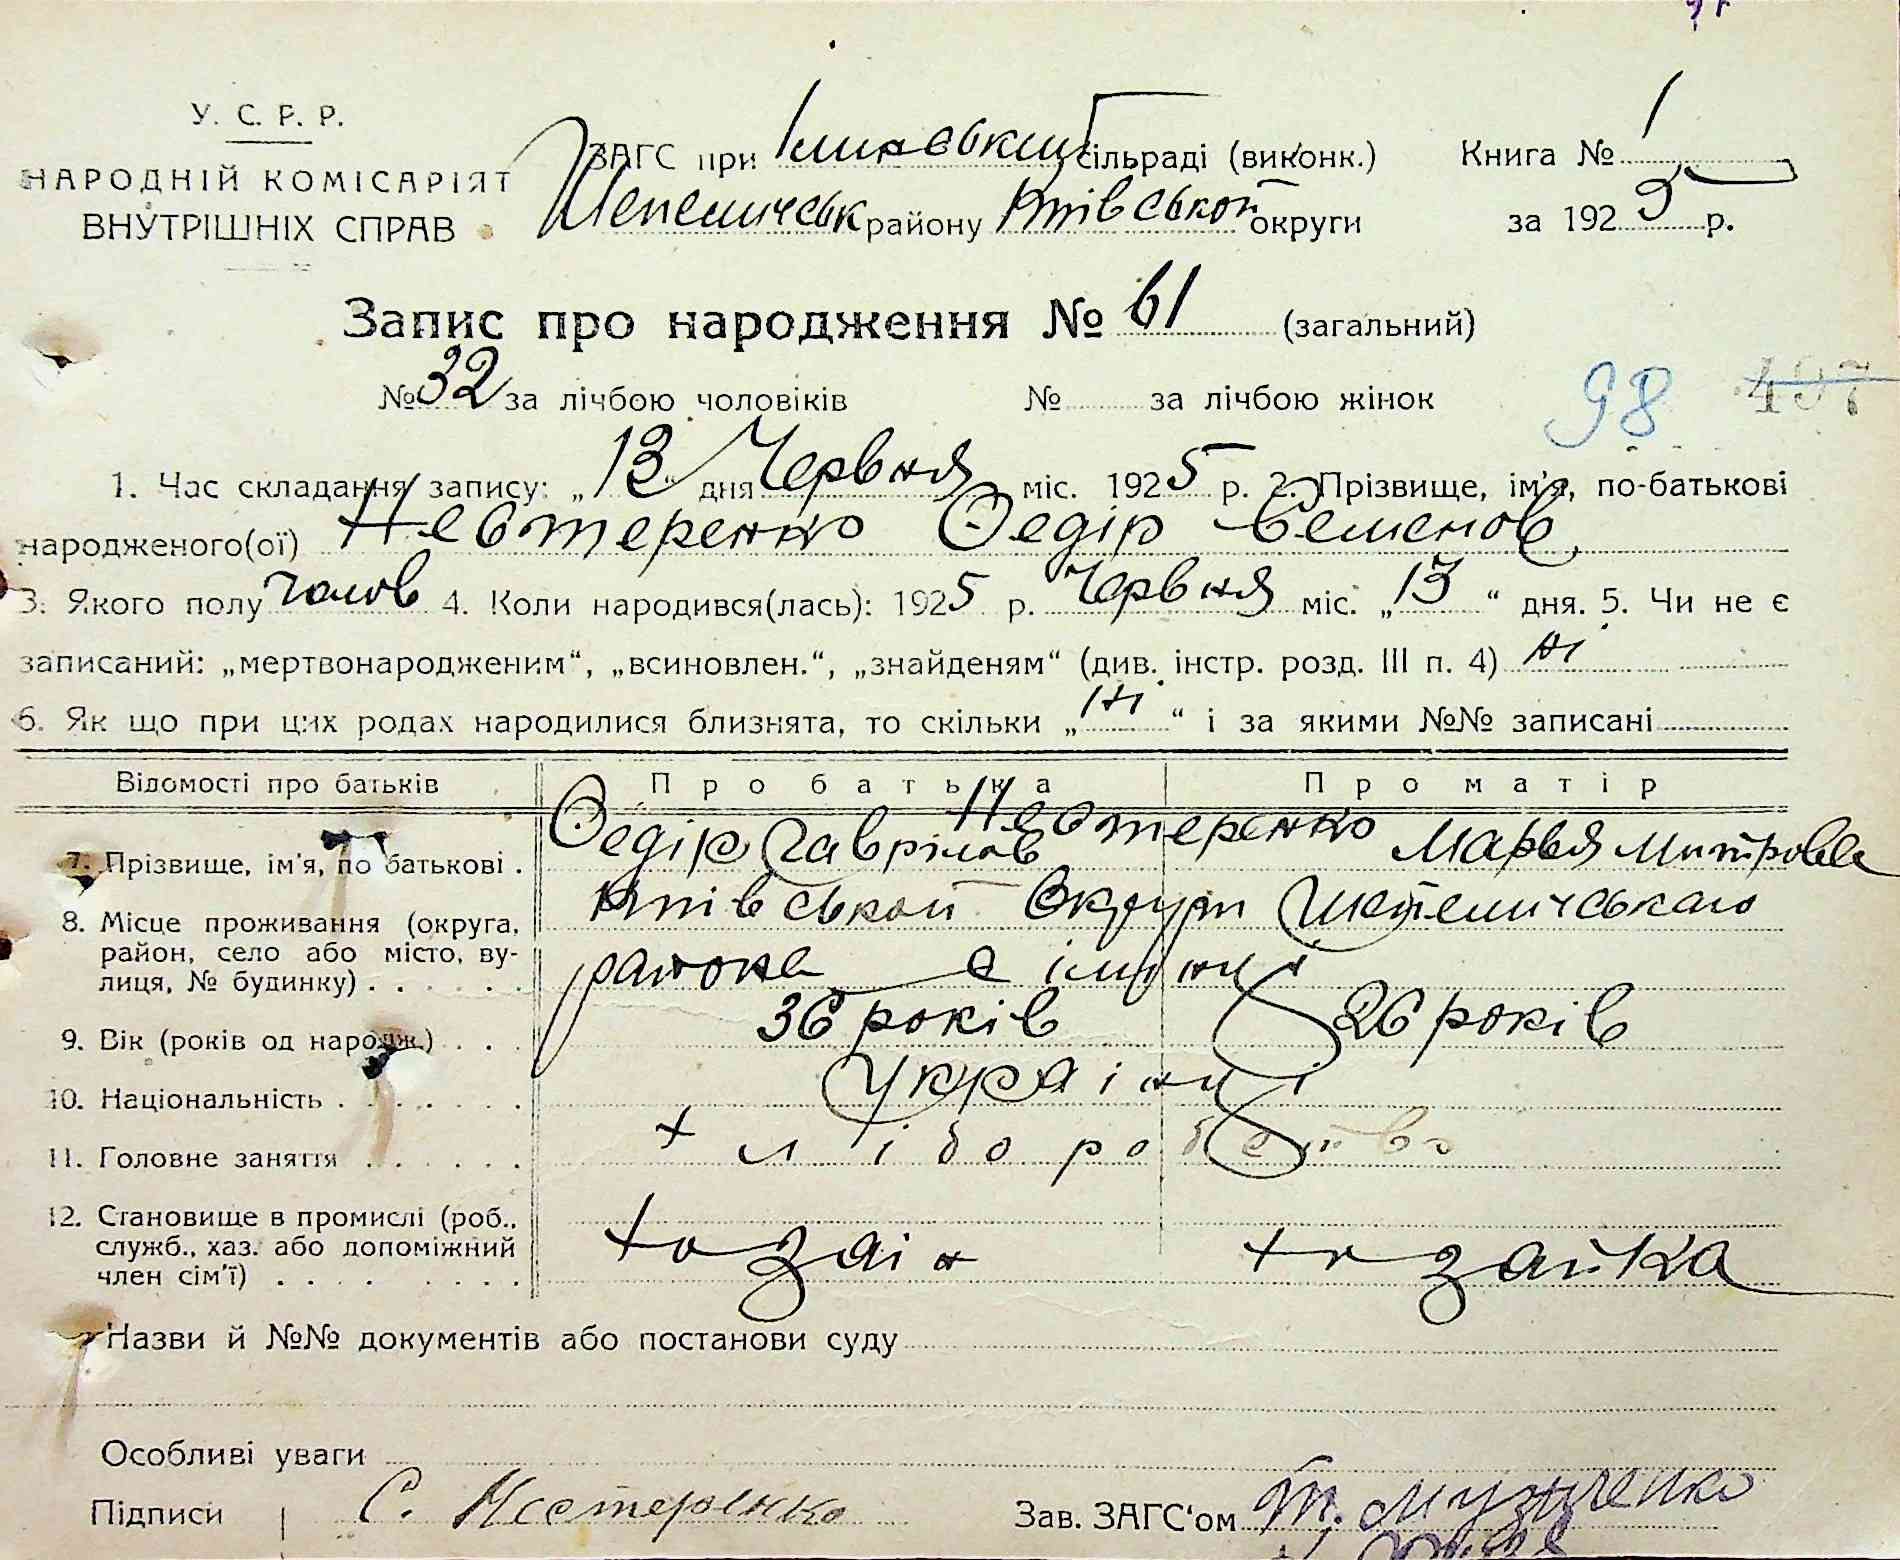 У. С. Р. Р.
НАРОДНІЙ КОМІСАРІЯТ
ВНУТРІШНІХ СПРАВ
ЗАГС при сільраді (виконк.)
району округи
Книга № 1
за 1925 р.
Запис про народження № 61 (загальний)
№ 32 за лічбою чоловіків № за лічбою жінок
98 497
1. Час складання запису: „13“ дня Червня міс. 1925 р. 2. Прізвище, ім'я, по-батькові
народженого(ої) Нестеренко Федір Семенов
3. Якого полу чолов 4. Коли народився(лась): 1925 р. Червня міс. „13“ дня. 5. Чи не є
записаний: „мертвонародженим“, „всиновлен.“, „знайденям“ (див. інстр. розд. III п. 4) ні
6. Як що при цих родах народилися близнята, то скільки „ні“ і за якими №№ записані
Відомості про батьків Про батька Про матір
7. Прізвище, ім'я, по батькові . Федір Гаврілов Нестеренко Марья
8. Місце проживання (округа, район, село або місто, вулиця, № будинку) . . . . . .
района с
9. Вік (років од народж.) . . . 36 років 26 років
10. Національність . . . . . . . Українці
11. Головне заняття . . . . . . хліборобство
12. Становище в промислі (роб., служб., хаз. або допоміжний член сім'ї) . . . . . . . . хозаін хозайка
Назви й №№ документів або постанови суду
Особливі уваги
Підписи С. Нестеренко Зав. ЗАГС'ом